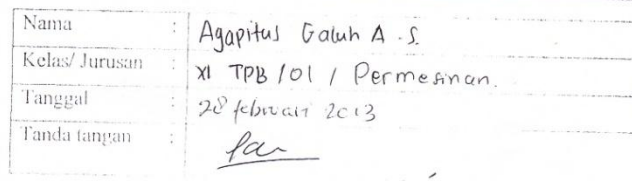 Nama : Agapitus Galuh A.S.
Kelas/ Jurusan : XI TPB /01 / Permesinan.
Tanggal : 28 februari 2013
Tanda tangan :